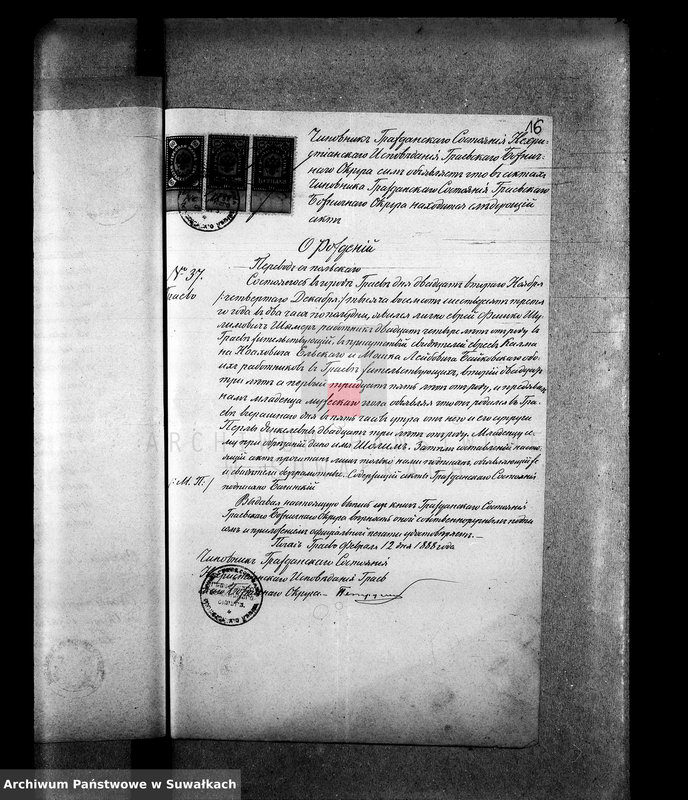 16
Чиновникъ Гражданскаго Состоянія Нехри-
стіанскаго Исповѣданія Граевскаго Божнич-
наго Округа симъ объявляетъ что въ актахъ
Чиновника Гражданскаго Состоянія Граевскаго
Божничнаго Округа находится слѣдующій
актъ
О Рожденіи
Переводъ съ польскаго
№ 37.
Граево
Состоялось въ городѣ Граевѣ дня двадцать втораго Ноября
/четвертаго Декабря/ тысяча восемсотъ шестьдесятъ третья-
го года въ два часа по полудни, явился лично еврей
работникъ двадцать четыре лѣтъ отъ роду въ
Граевѣ жительствующій, въ присутствіи свидѣтелей евреевъ
и Мошка Лейбовича Байковскаго обо-
ихъ работниковъ въ Граевѣ жительствующихъ, второй двадцать
три лѣтъ а первый тридцать пять лѣтъ отъ роду, и предъявилъ
намъ младенца мужескаго пола объявляя что онъ родился въ Гра-
евѣ вчерашняго дня въ пять часовъ утра отъ него и его супруги
Перли Янкелевны двадцать три лѣтъ отъ роду. Младенцу се-
му при обрѣзаніи дано имя Шолимъ. Затѣмъ составленный насто-
ящій актъ прочитанъ лишь только нами подписанъ, объявляющій же
и свидѣтели безграмотны. Содержащій акты Гражданскаго Состоянія
/: М. П. :/
подписано
Выдавая настоящую выпись изъ книгъ Гражданскаго Состоянія
Граевскаго Божничнаго Округа вѣрность оной собственноручнымъ подпи-
сомъ и приложеніемъ оффиціальной печати удостовѣряетъ. —
Посадъ Граево Февраля 12 дня 1888 года
Чиновникъ Гражданскаго Состоянія
Нехристіанскаго Исповѣданія Граев-
скаго Божничнаго Округа
ARCH
Archiwum Państwowe w Suwałkach